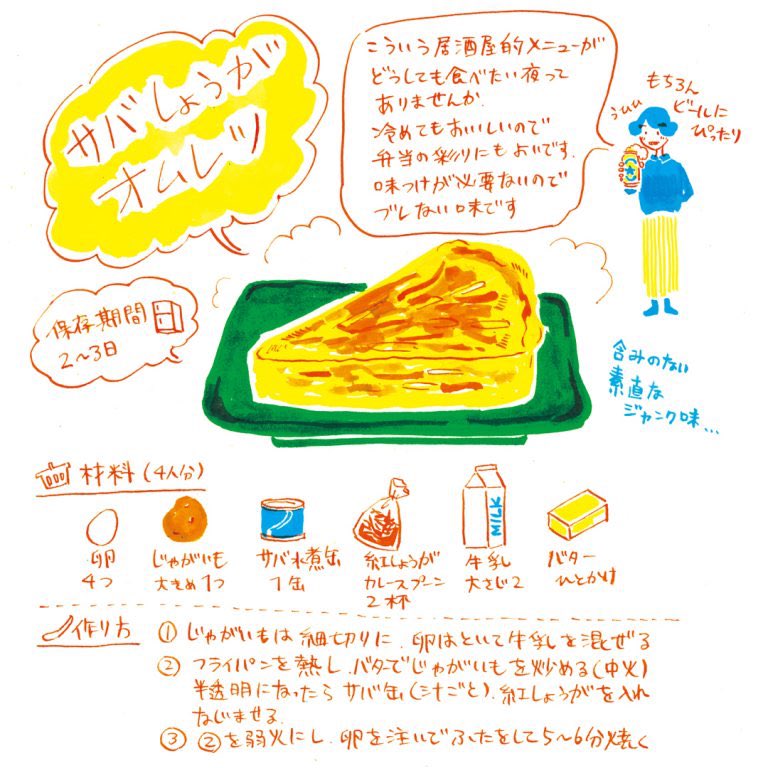 サバしょうが
オムレツ
こういう居酒屋的メニューが
どうしても食べたい夜って
ありませんか.
冷めてもおいしいので
弁当の彩りにもよいです.
味つけが必要ないので
ブレない味です
うひひ
もちろん
ビールに
ぴったり
保存期間
2〜3日
含みのない
素直な
ジャンク味...
材料(4人分)
卵
4つ
じゃがいも
大きめ1つ
サバ水煮缶
1缶
紅しょうが
カレースプーン
2杯
MILK
牛乳
大さじ2
バター
ひとかけ
作り方
① じゃがいもは細切りに. 卵はといて牛乳を混ぜる
② フライパンを熱し.バターでじゃがいもを炒める(中火)
半透明になったら サバ缶(汁ごと).紅しょうがを入れ
なじませる.
③ ②を弱火にし.卵を注いでふたをして5〜6分焼く